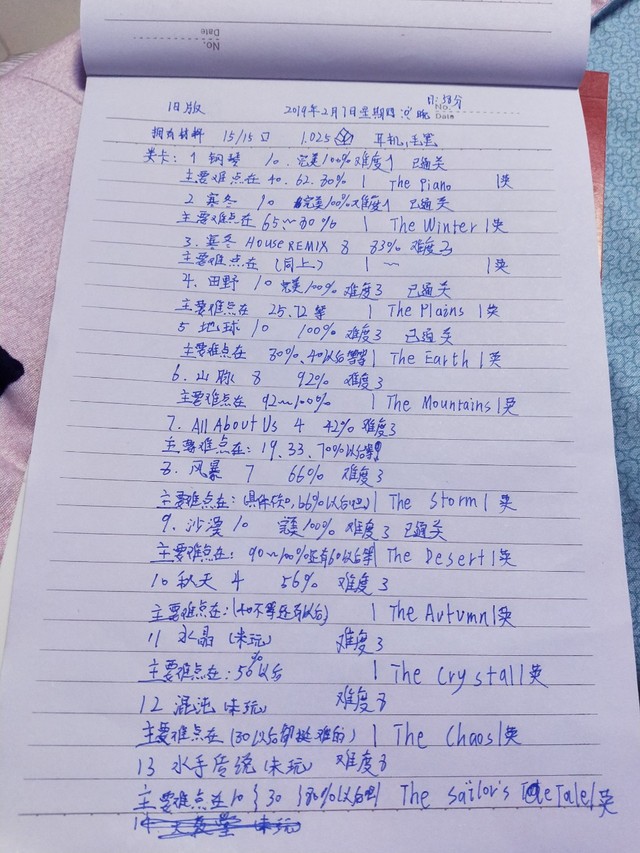 No.
Date
11:58分
No.
Date
旧版 2019年2月7日星期四 晚
拥有材料 15/15 1.025 耳机,毛笔
关卡: 1 钢琴 10. 完美100% 难度1 已通关
主要难点在 40. 62. 80% | The Piano |英
2 寒冬 10 完美100% 难度1 已通关
主要难点在 65~80% | The Winter |英
3. 寒冬 House REMIX 8 83% 难度3
主要难点在 (同上.) | ~ |英
4. 田野 10 完美100% 难度3 已通关
主要难点在 25.72 等 | The Plains |英
5 地球 10 100% 难度3 已通关
主要难点在 30%.40以后等等 | The Earth |英
6. 山脉 8 92% 难度3
主要难点在 92~100% | The Mountains |英
7. All About Us 4 42% 难度3
主要难点在: 19.33.70%以后等
8. 风暴 7 66% 难度3
主要难点在:( 66%以后 ) | The Storm | 英
9. 沙漠 10 完美100% 难度3 已通关
主要难点在: 90~100%还有60以后等 | The Desert |英
10 秋天 4 56% 难度3
主要难点在:(40不等还有以后) | The Autumn |英
11 水晶 (未玩) 难度3
主要难点在: 56%以后 | The Crystal |英
12 混沌 (未玩) 难度8
主要难点在 (30以后都挺难的) | The Chaos |英
13 水手传说 (未玩) 难度8
主要难点在 10 } 30 } 80%以后 The sailor's Tale |英
14 天 堂 未玩